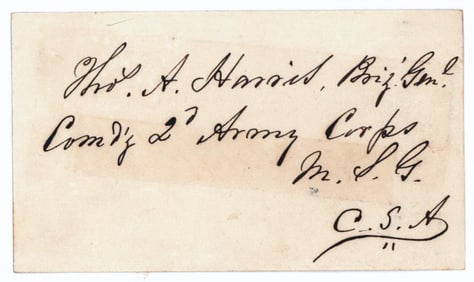 Tho's. A. Harris, Brig. Genl.
Comd'g 2d Army Corps
M. S. G.
C. S. A